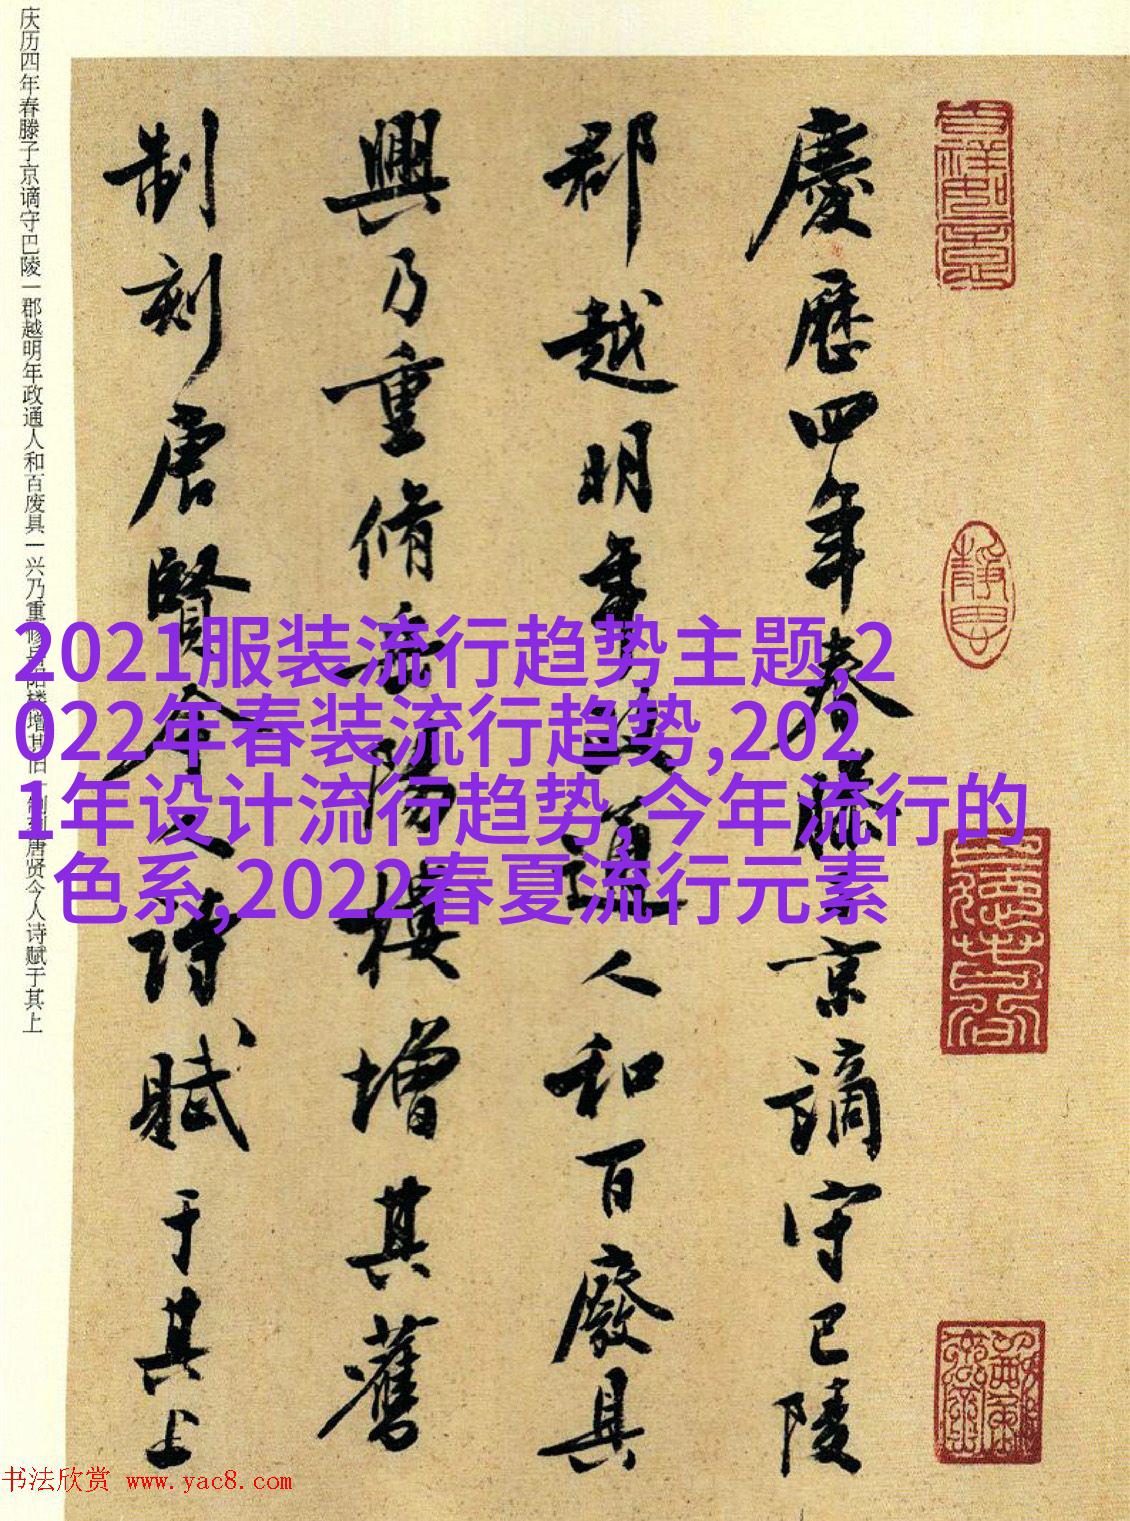 慶歷四年春滕子京謫守巴陵
郡越明年政通人和百廢具
興乃重脩岳陽樓增其舊
制刻唐賢今人詩賦于其上
庆历四年春滕子京谪守巴陵一郡越明年政通人和百废具一兴乃重修岳阳楼增其旧一制刻唐贤今人诗赋于其上
2021服装流行趋势主题,2
022年春装流行趋势,202
1年设计流行趋势,今年流行的
色系,2022春夏流行元素
书法欣赏 www.yac8.com